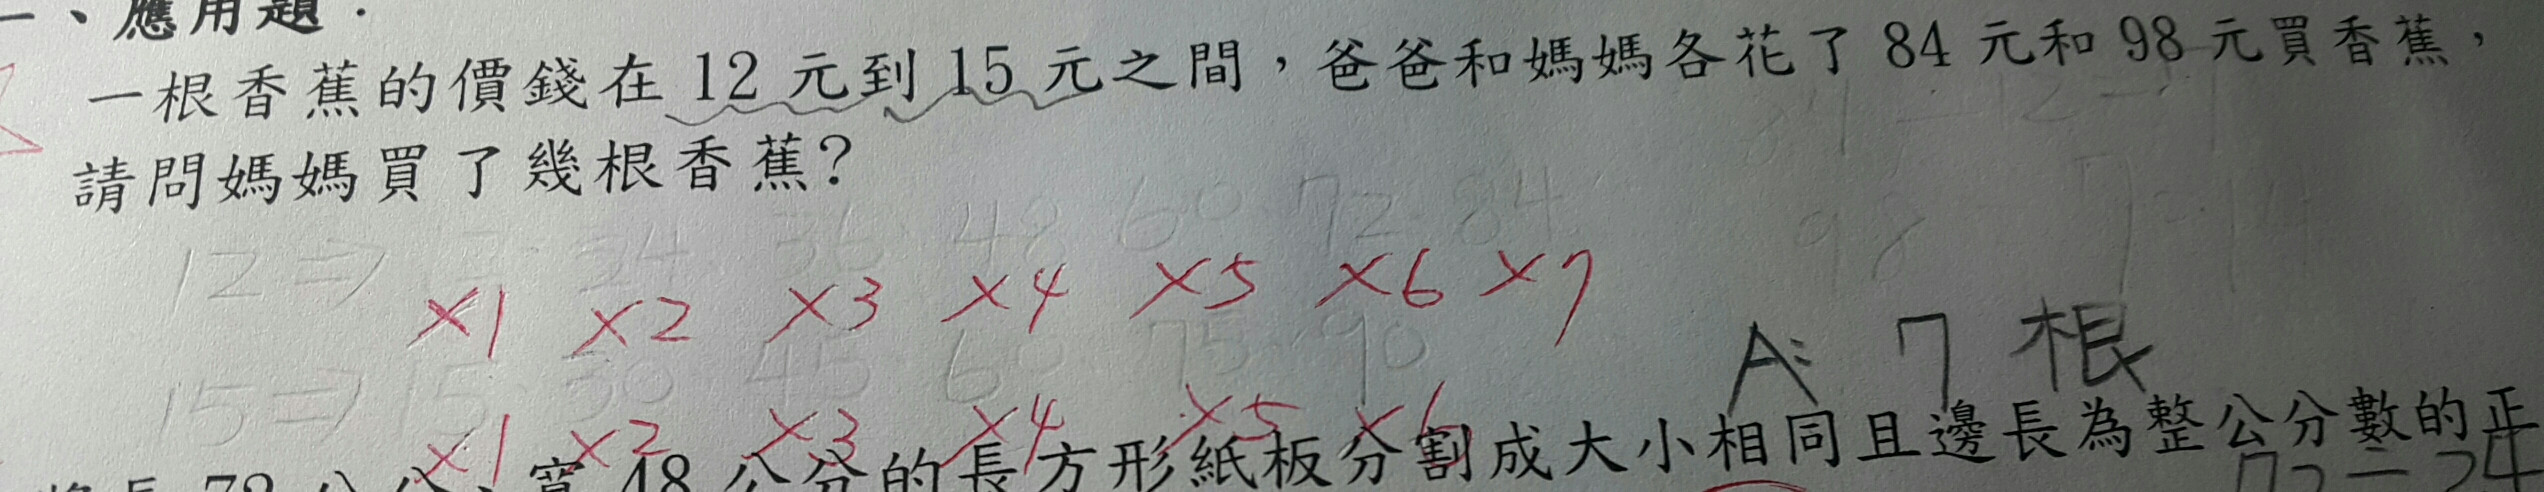 一、應用題：
一根香蕉的價錢在 12 元到 15 元之間，爸爸和媽媽各花了 84 元和 98 元買香蕉，
請問媽媽買了幾根香蕉？
84 12
60 72 84
12⇒ 24 36 48
98 7 14
×1 ×2 ×3 ×4 ×5 ×6 ×7
15⇒15 30 45 60 75 90
A: 7 根
×1 ×2 ×3 ×4 ×5 ×6
長 72 公分、寬 48 公分的長方形紙板分割成大小相同且邊長為整公分數的正